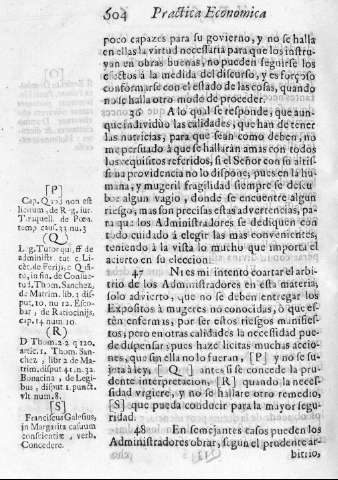 604 Practica Economica
poco capazes para su govierno, y no se halla
en ellas la virtud necessaria para que los instru-
yan en obras buenas, no pueden seguirse los
efectos à la medida del discurso, y es forçoso
conformarse con el estado de las cosas, quando
no se halla otro modo de proceder.
A lo qual se responde, que aun-
que individùo las calidades, que han de tener
las nutricias, para que sean como deben, no
me persuado à que se hallaràn amas con todos
los requisitos referidos, si el Señor con su altis-
sima providencia no lo dispone, pues en la hu-
mana, y mugeril fragilidad siempre se descu-
bre algun vagio, donde se encuentre algun
riesgo, mas son precisas estas advertencias, pa-
ra que los Administradores se dediquen con
todo cuidado à elegir las mas convenientes,
teniendo à la vista lo mucho que importa el
acierto en su eleccion.
47 Ni es mi intento coartar el arbi-
trio de los Administradores en esta materia,
solo advierto, que no se deben entregar los
Expositos à mugeres no conocidas, ò que es-
tèn enfermas, por ser estos riesgos manifies-
tos; pero en otras calidades la necessidad pue-
de dispensar; pues haze licitas muchas accio-
nes, que sin ella no lo fueran, [P] y no se su-
jeta à ley, [Q] antes si se concede la pru-
dente interpretacion, [R] quando la neces-
sidad vrgiere, y no se hallare otro remedio,
[S] que pueda conducir para la mayor segu-
ridad.
48 En semejantes casos pueden los
Administradores obrar, segun el prudente ar-
bitrio,
[P]
Cap. Quod non est
licitum, de Reg. iur.
Tiraquell. de Pœn.
temp. caus. 33 nu. 3
(Q)
L. 9. Tutor qui, ff de
administr. tut. c. Li-
cèt, de Ferijs, c. Quæ-
sito, in fin. de Consue-
to l. Thom. Sanchez,
de Matrim. lib. 3 dis-
put. 10. nu 12. Escobar, de Ratiocinijs,
cap. 14. num 10.
(R)
D Thom. 2. 2. q 120.
artic. 1. Thom. San-
chez, libr 2 de Ma-
trim. disput 41. n. 32.
Bonacina, de Legi-
bus, disput 1. punct.
vlt num. 8.
[S]
Franciscus Galesius,
in Margarita casuum
conscientiæ, verb.
Concedere.